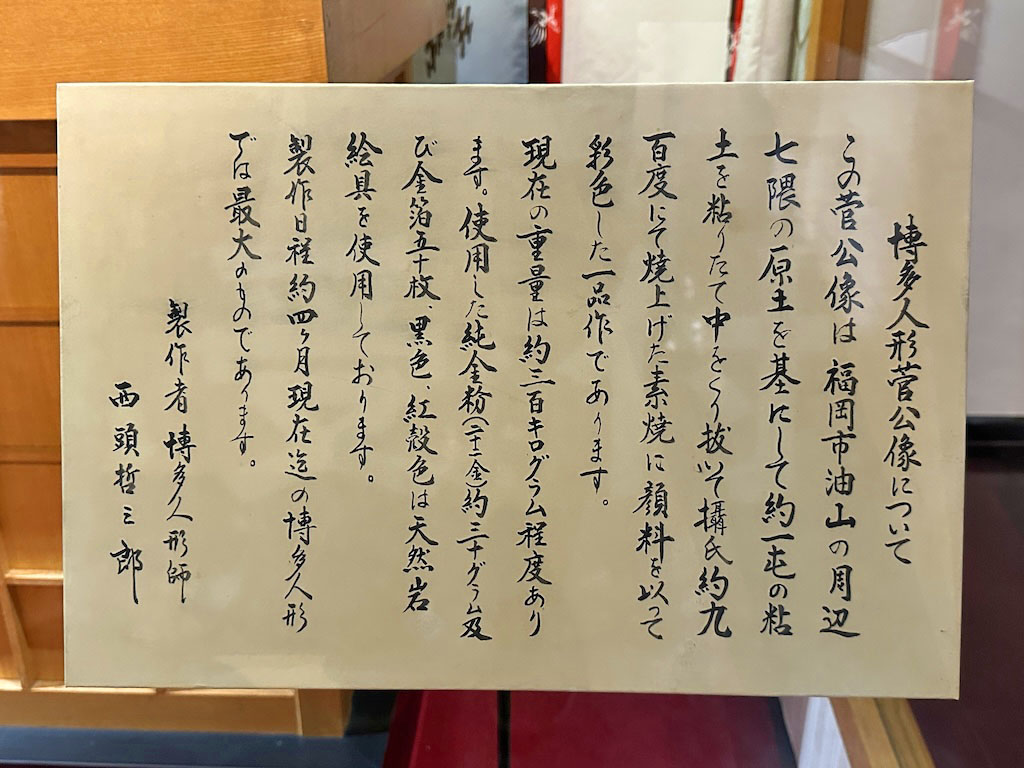 博多人形菅公像について
この菅公像は福岡市油山の周辺
七隈の原土を基にして約一屯の粘
土を粘りたて中をくり抜いて攝氏約九
百度にて焼上げた素焼に顔料を以って
彩色した一品作であります。
現在の重量は約三百キログラム程度あり
ます。使用した純金粉(二十二金)約三十グラム及
び金箔五十枚、黒色、紅殻色は天然岩
絵具を使用しております。
製作日程約四ヶ月現在迄の博多人形
では最大のものであります。
製作者 博多人形師
西頭哲三郎